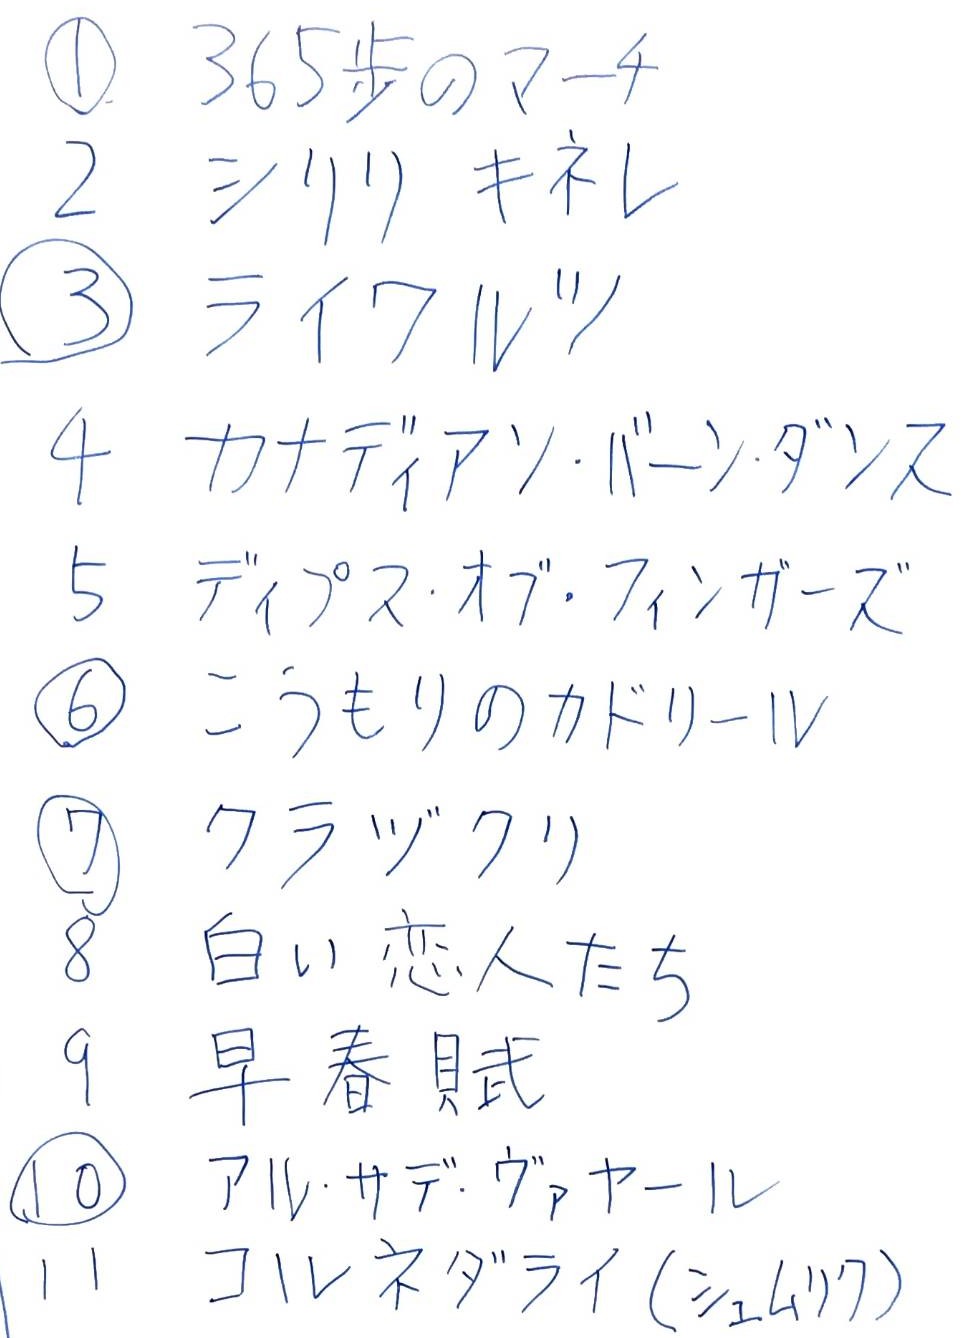 ① 365歩のマーチ
2 シリリ キネレ
③ ライワルツ
4 カナディアン・バーン・ダンス
5 ディプス・オブ・フィンガーズ
⑥ こうもりのカドリール
⑦ クラヅクリ
8 白い恋人たち
9 早春賦
⑩ アル・サデ・ヴァヤール
11 コルネダライ(シュムリク)